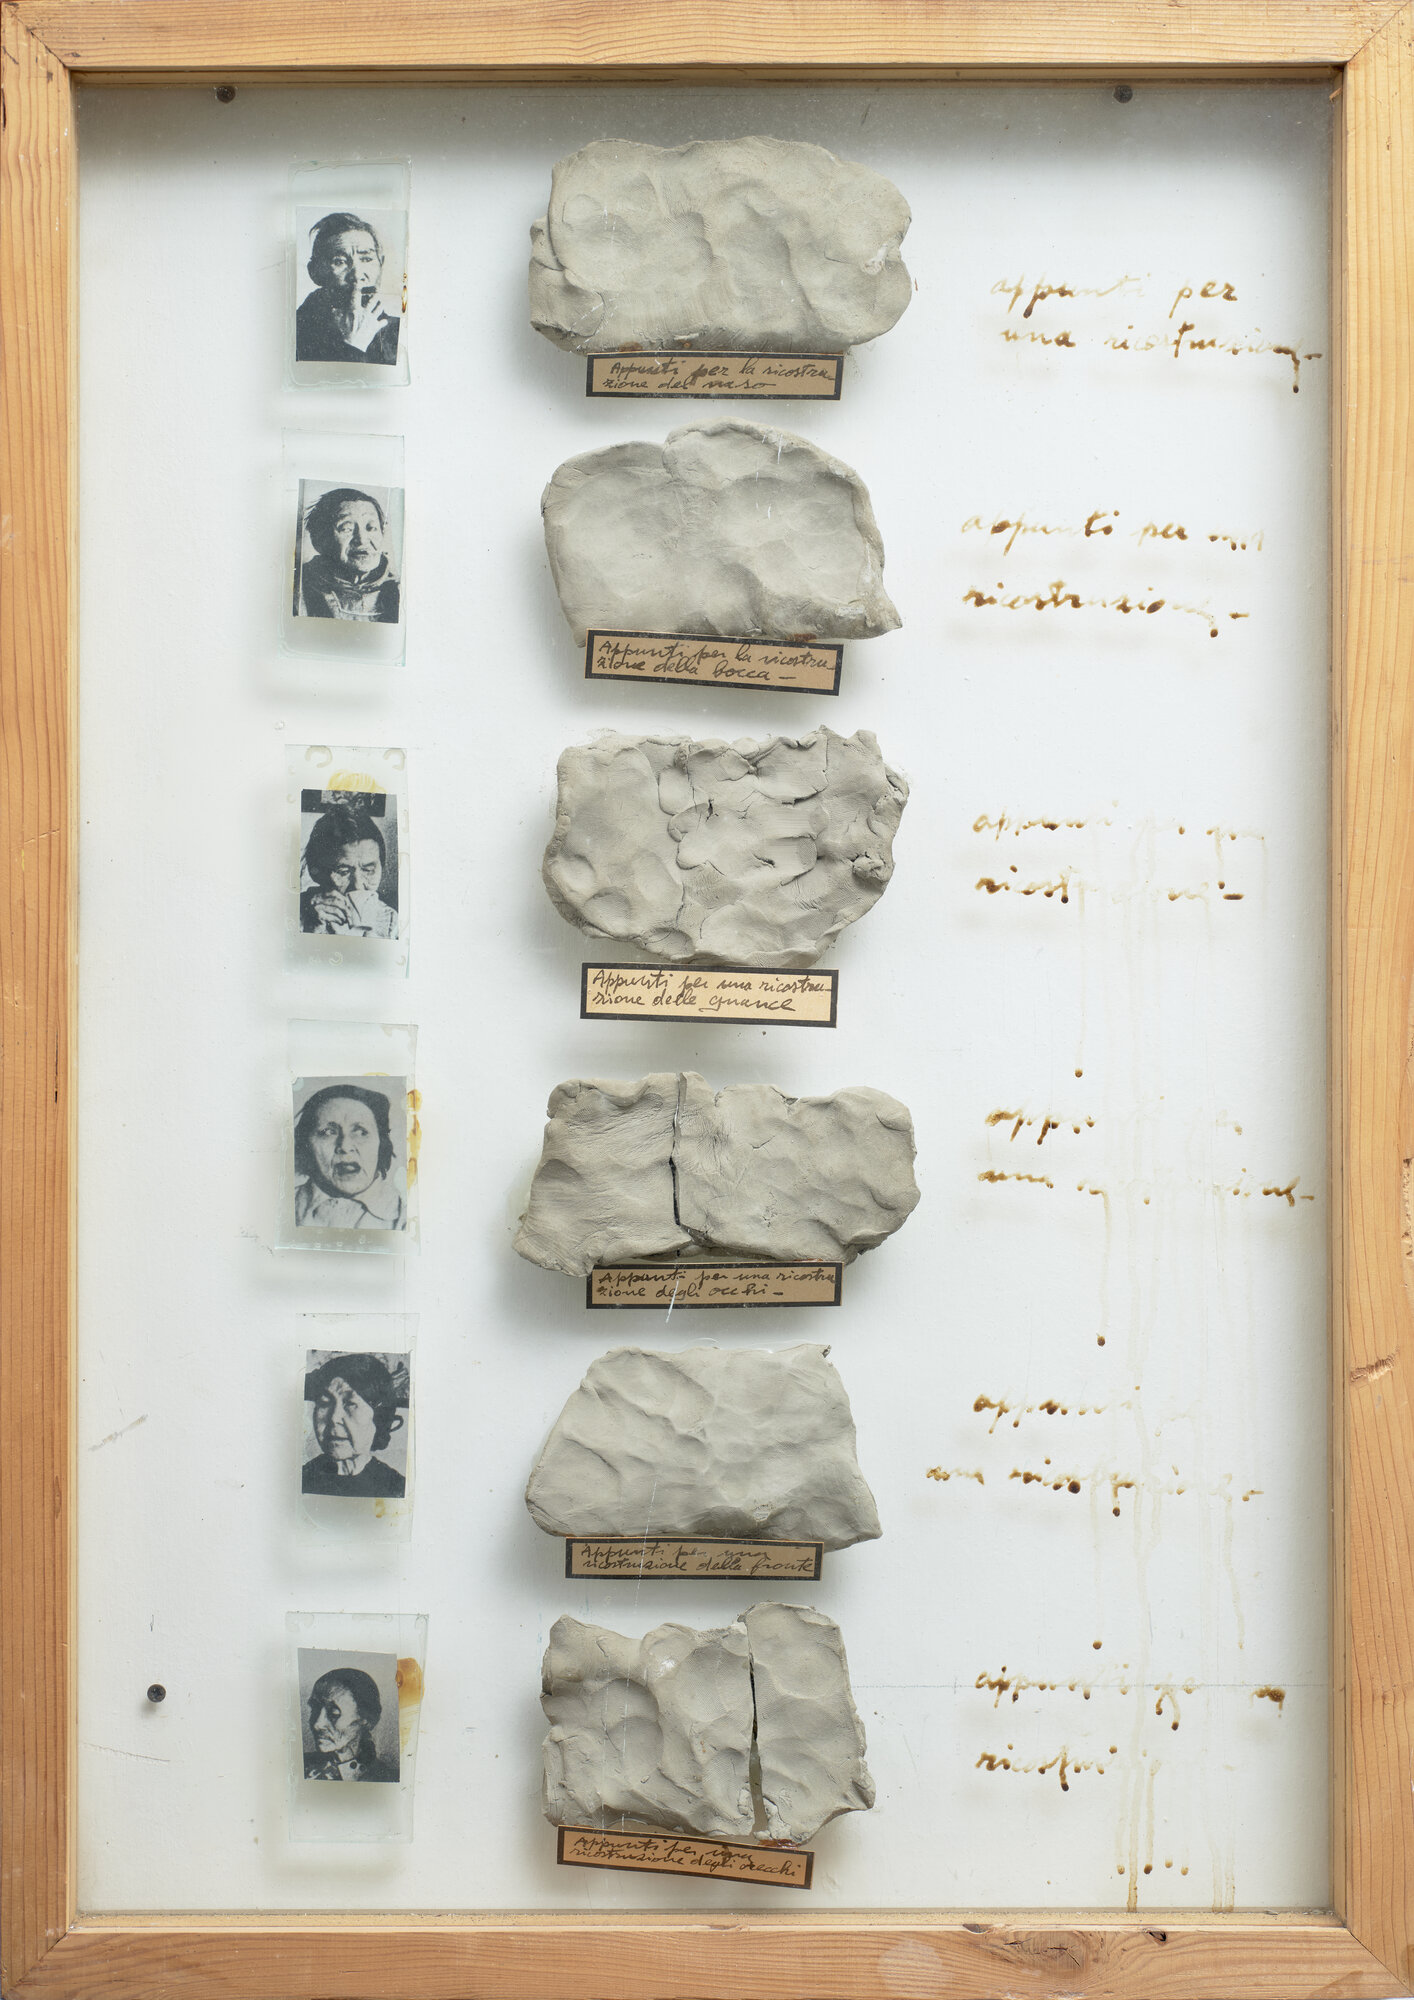 Appunti per la ricostru-
zione del naso
appunti per
una ricostruzione-
Appunti per la ricostru-
zione della bocca-
appunti per una
ricostruzione-
Appunti per una ricostru-
zione delle guance
appunti per una
ricostruzione-
Appunti per una ricostru
zione degli occhi-
appunti
una ricostruzione-
Appunti per una
ricostruzione della fronte
appunti
una ricostruzione-
Appunti per una
ricostruzione degli orecchi
appunti per
ricostruzione